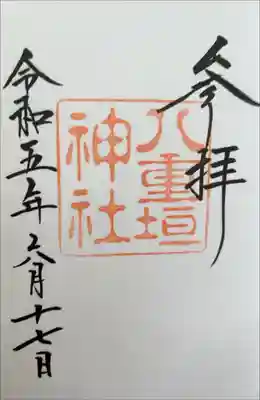 参拝
八重垣
神社
令和五年六月十七日